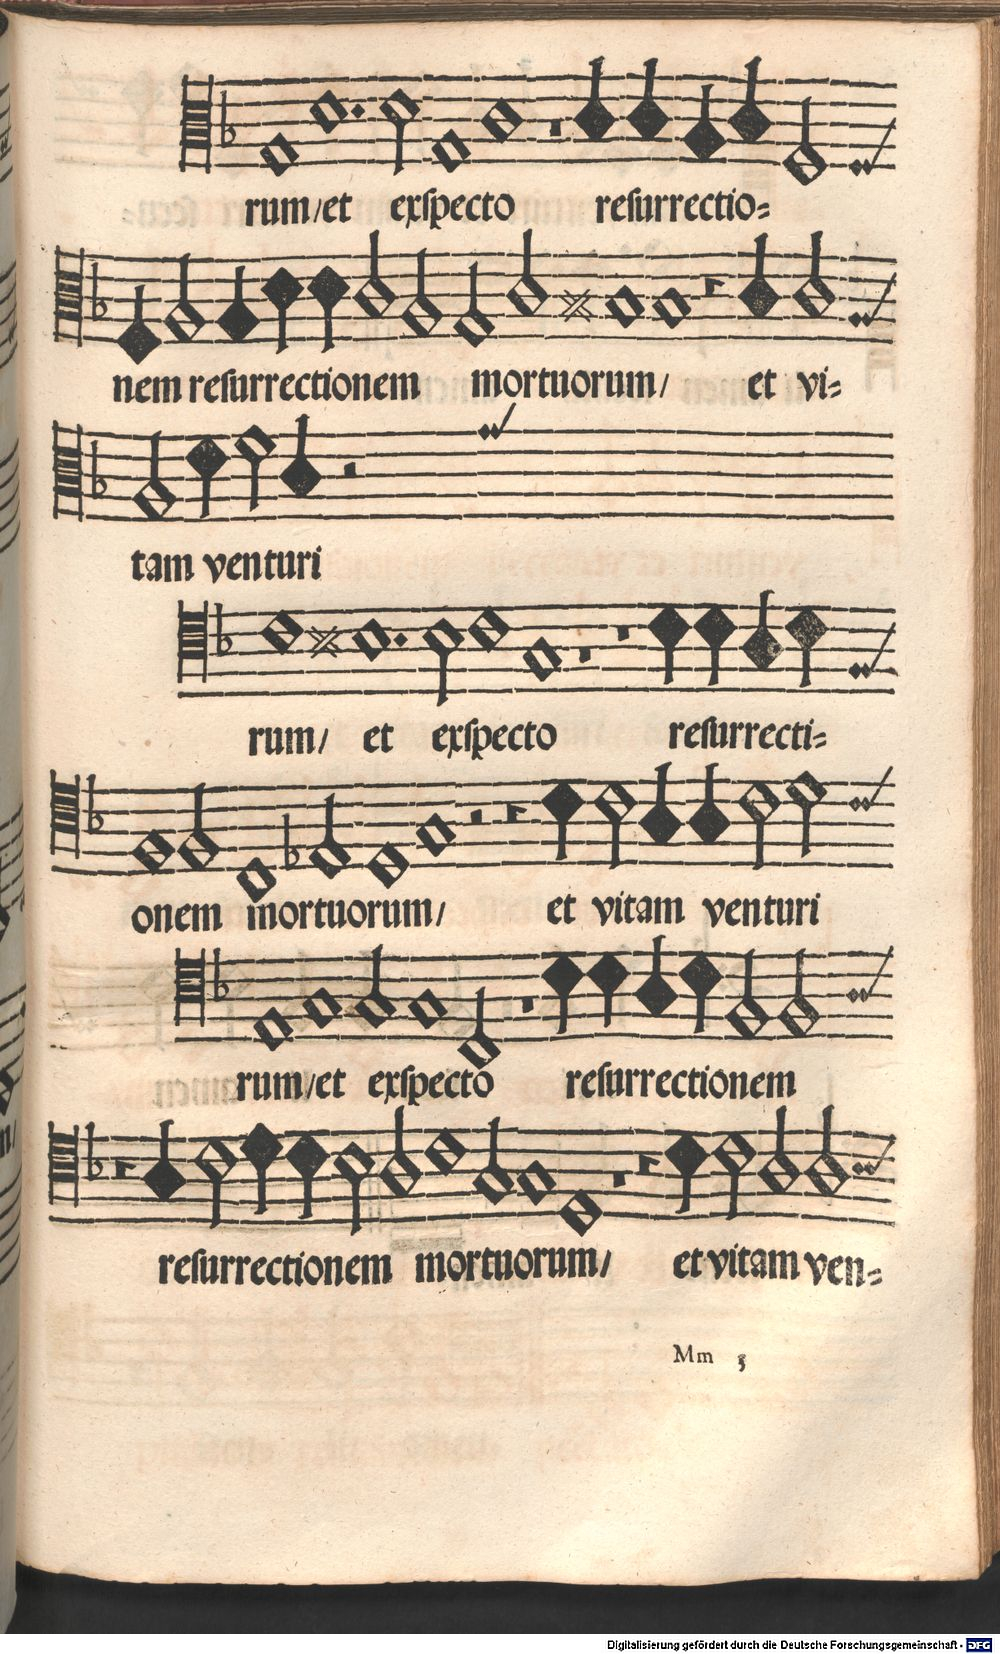 rum/et exspecto resurrectio=
nem resurrectionem mortuorum/ et vi=
tam venturi
rum/ et exspecto resurrecti=
onem mortuorum/ et vitam venturi
rum/et exspecto resurrectionem
resurrectionem mortuorum/ et vitam ven=
Mm 3
Digitalisierung gefördert durch die Deutsche Forschungsgemeinschaft - DFG